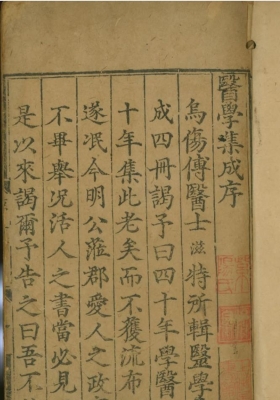 醫學集成序
烏傷傅醫士滋特所輯毉學
成四冊謁予曰四十年學醫
十年集此老矣而不獲流布
遂泯今明公蒞郡愛人之政
不畢舉況活人之書當必見
是以來謁爾予告之曰吾不